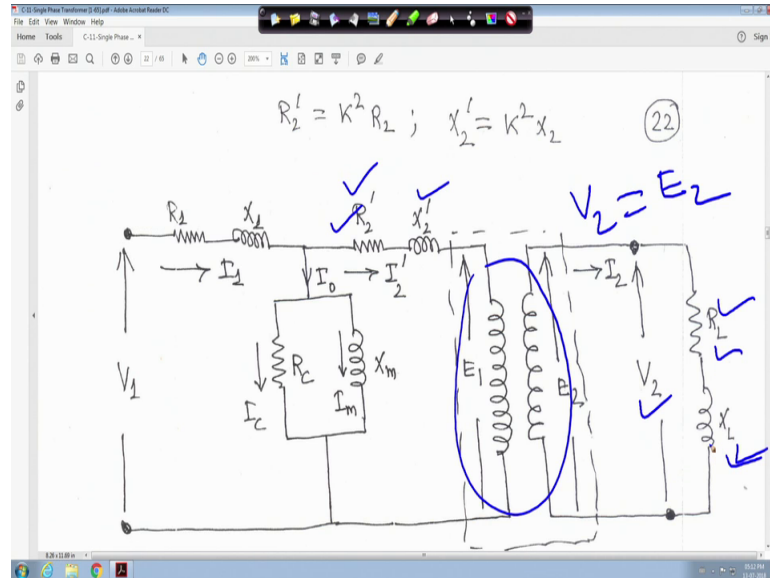 C-11-Single Phase Transformer [1-65].pdf - Adobe Acrobat Reader DC
File Edit View Window Help
Home Tools C-11-Single Phase ... × Sign
22 / 65 200%
R₂' = K² R₂ ; X₂' = K² X₂ 22
V₂ = E₂
R₁ X₁ R₂' X₂'
I₁ I₀ I₂' I₂
V₁ R_C X_m E₁ E₂ V₂ R_L
I_C I_m X_L
8.26 x 11.69 in
05:12 PM